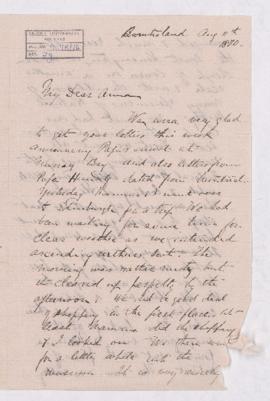 Burntisland Aug 11th
1890.
My Dear Anna
We were very glad
to get your letters this week
announcing Papa's arrival at
Murray Bay and also letters from
Yesterday Mamma & I went over
to Edinburgh for a trip. We had
been waiting for some time for
clear weather as we intended
ascending Arthur's Seat. The
morning was rather misty but
it cleared up perfectly by the
afternoon. We did a good deal
of shopping in the first place, at
least Mamma did the shopping
& I looked on. We then went
for a little while into the
museum. It is very